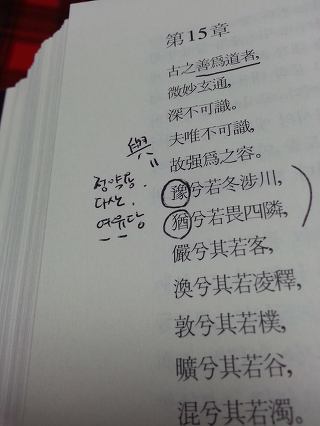 第15章
古之善爲道者,
微妙玄通,
深不可識。
夫唯不可識,
故强爲之容。
豫兮若冬涉川,
猶兮若畏四隣,
儼兮其若客,
渙兮其若凌釋,
敦兮其若樸,
曠兮其若谷,
混兮其若濁。
與
정약용.
다산.
여유당